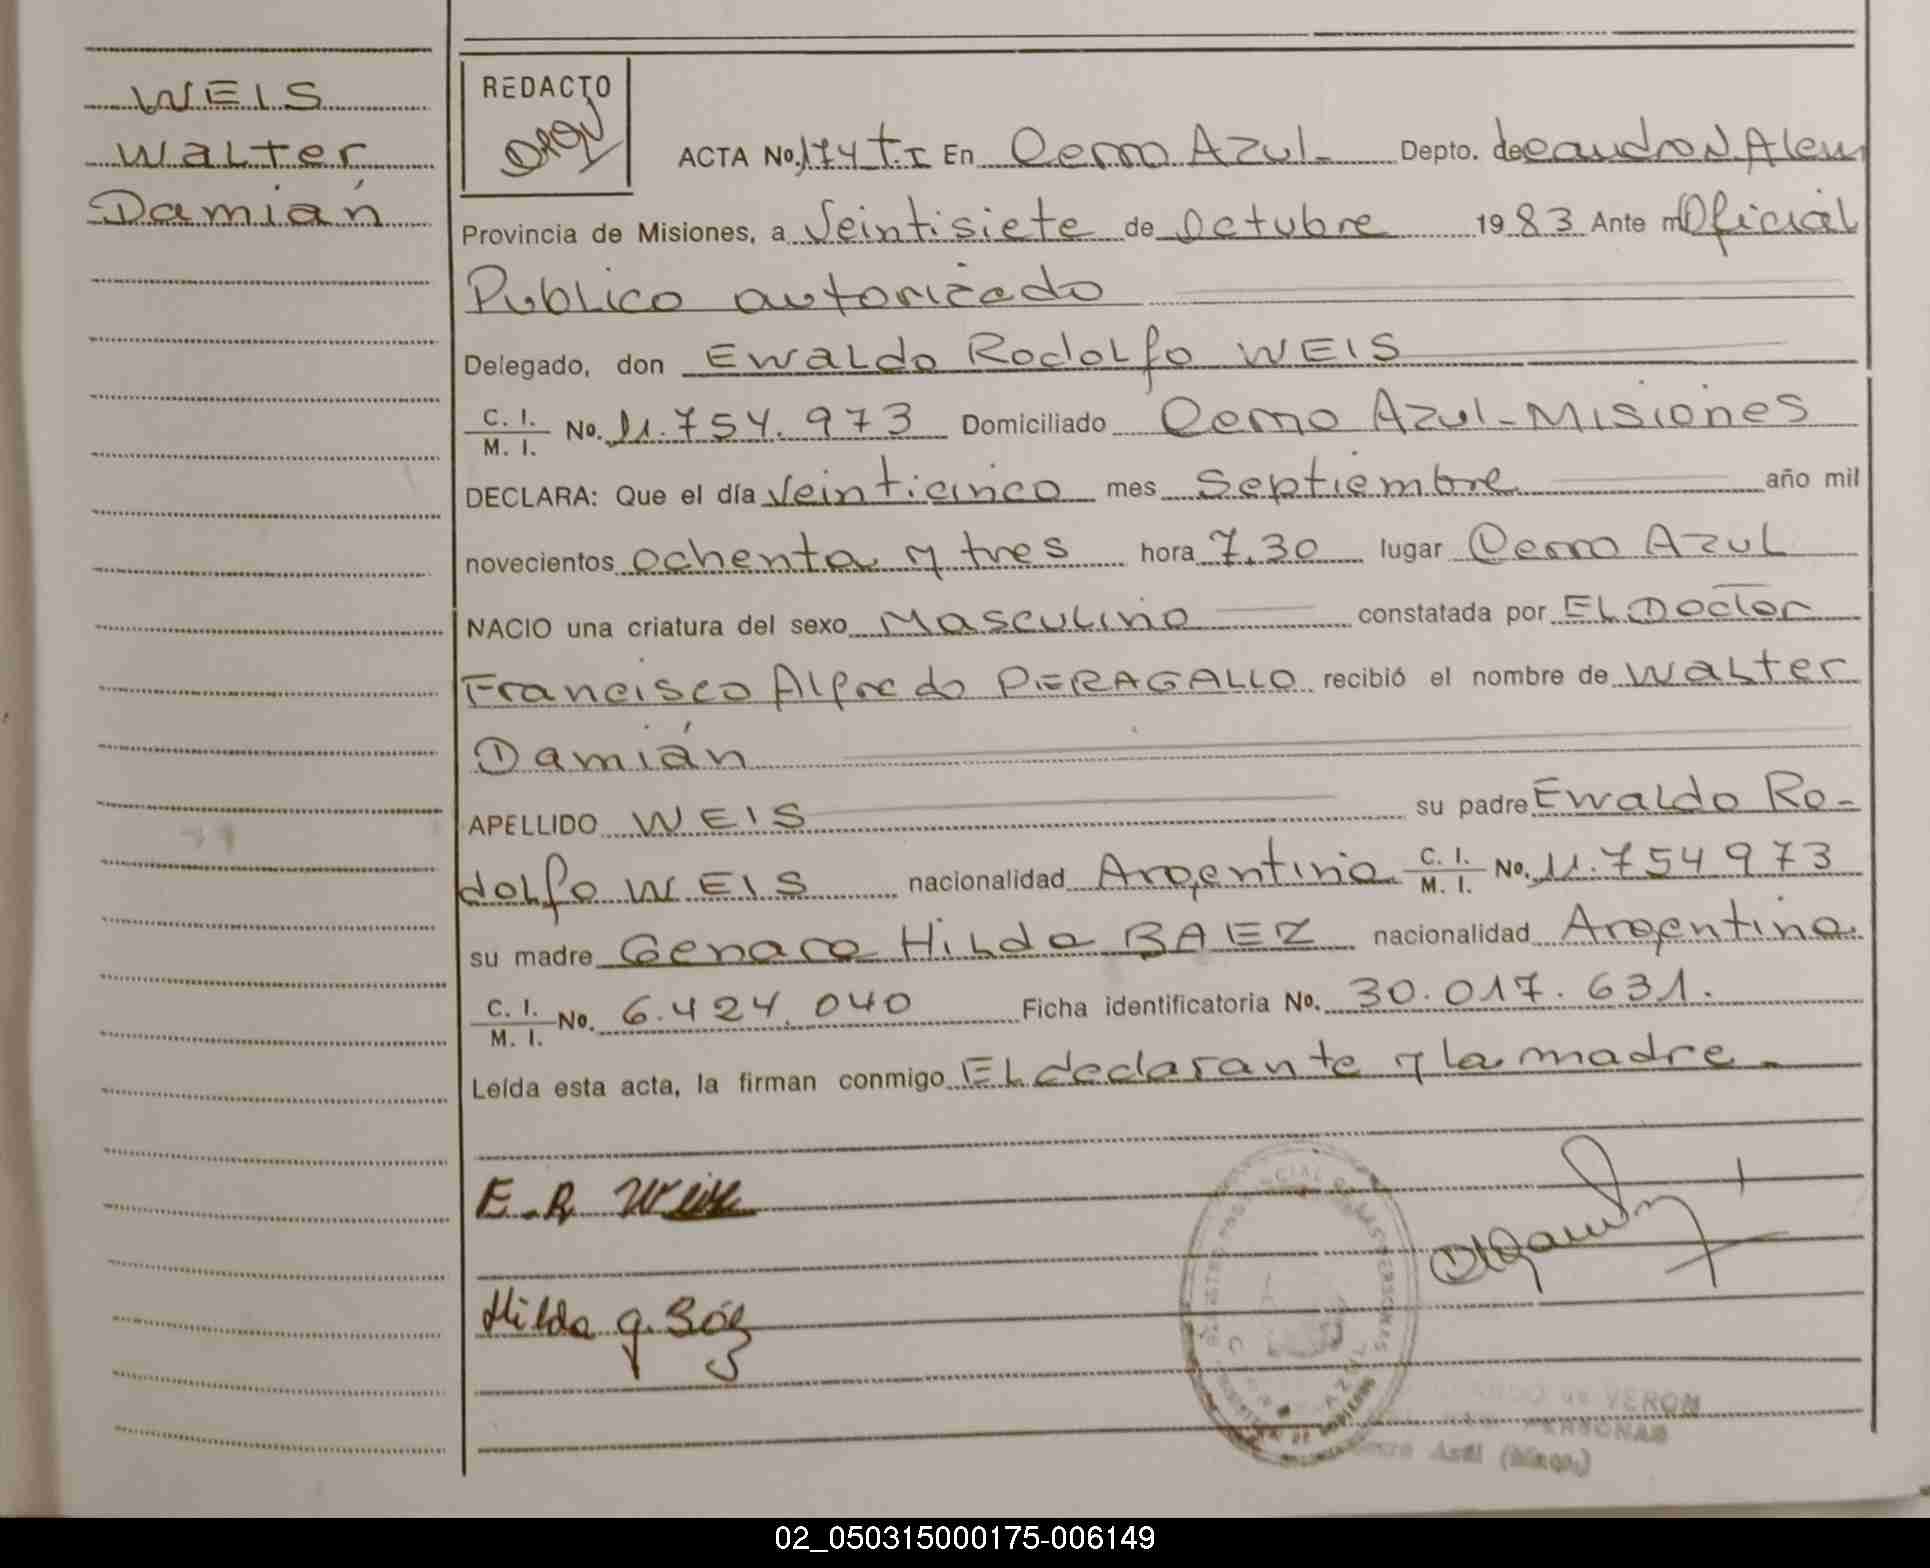 WEIS
Walter
Damián
REDACTO
ACTA No. 174 t. I En Cerro Azul- Depto. de Leandro N. Alem
Provincia de Misiones, a Veintisiete de Octubre 1983 Ante mí Oficial
Publico autorizado
Delegado, don Ewaldo Rodolfo WEIS
C. I. / M. I. No. 11.754.973 Domiciliado Cerro Azul-Misiones
DECLARA: Que el día Veinticinco mes Septiembre año mil
novecientos ochenta y tres hora 7,30 lugar Cerro Azul
NACIO una criatura del sexo Masculino constatada por El Doctor
Francisco Alfredo PIERAGALLO recibió el nombre de Walter
Damián
APELLIDO WEIS su padre Ewaldo Ro-
dolfo WEIS nacionalidad Argentina C. I. / M. I. No. 11.754973
su madre Genara Hilda BAEZ nacionalidad Argentina.
C. I. / M. I. No. 6.424.040 Ficha identificatoria No. 30.017.631.
Leída esta acta, la firman conmigo El declarante y la madre.-
E.R. Weis
Hilda g. Báez
VERON
PERSONAS
Cerro Azul
02_050315000175-006149